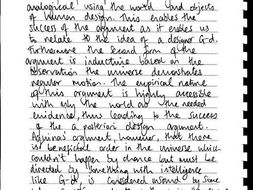 analogical using the world and objects
of human design. This enables the
success of the argument as it enables us
to relate to the idea of a designer G-d.
Furthermore the second form of the
argument is inductive based on the
observation the universe demonstrates
regular motion. The empirical nature
of this argument is highly accessible
with only the world as the needed
evidence, thus leading to the success
of the a posteriori design argument.
Aquinas argument, however, that there
is beneficial order in the universe which
couldn't happen by chance but must be
directed by something with intelligence
like G-d, is considered unsound by some